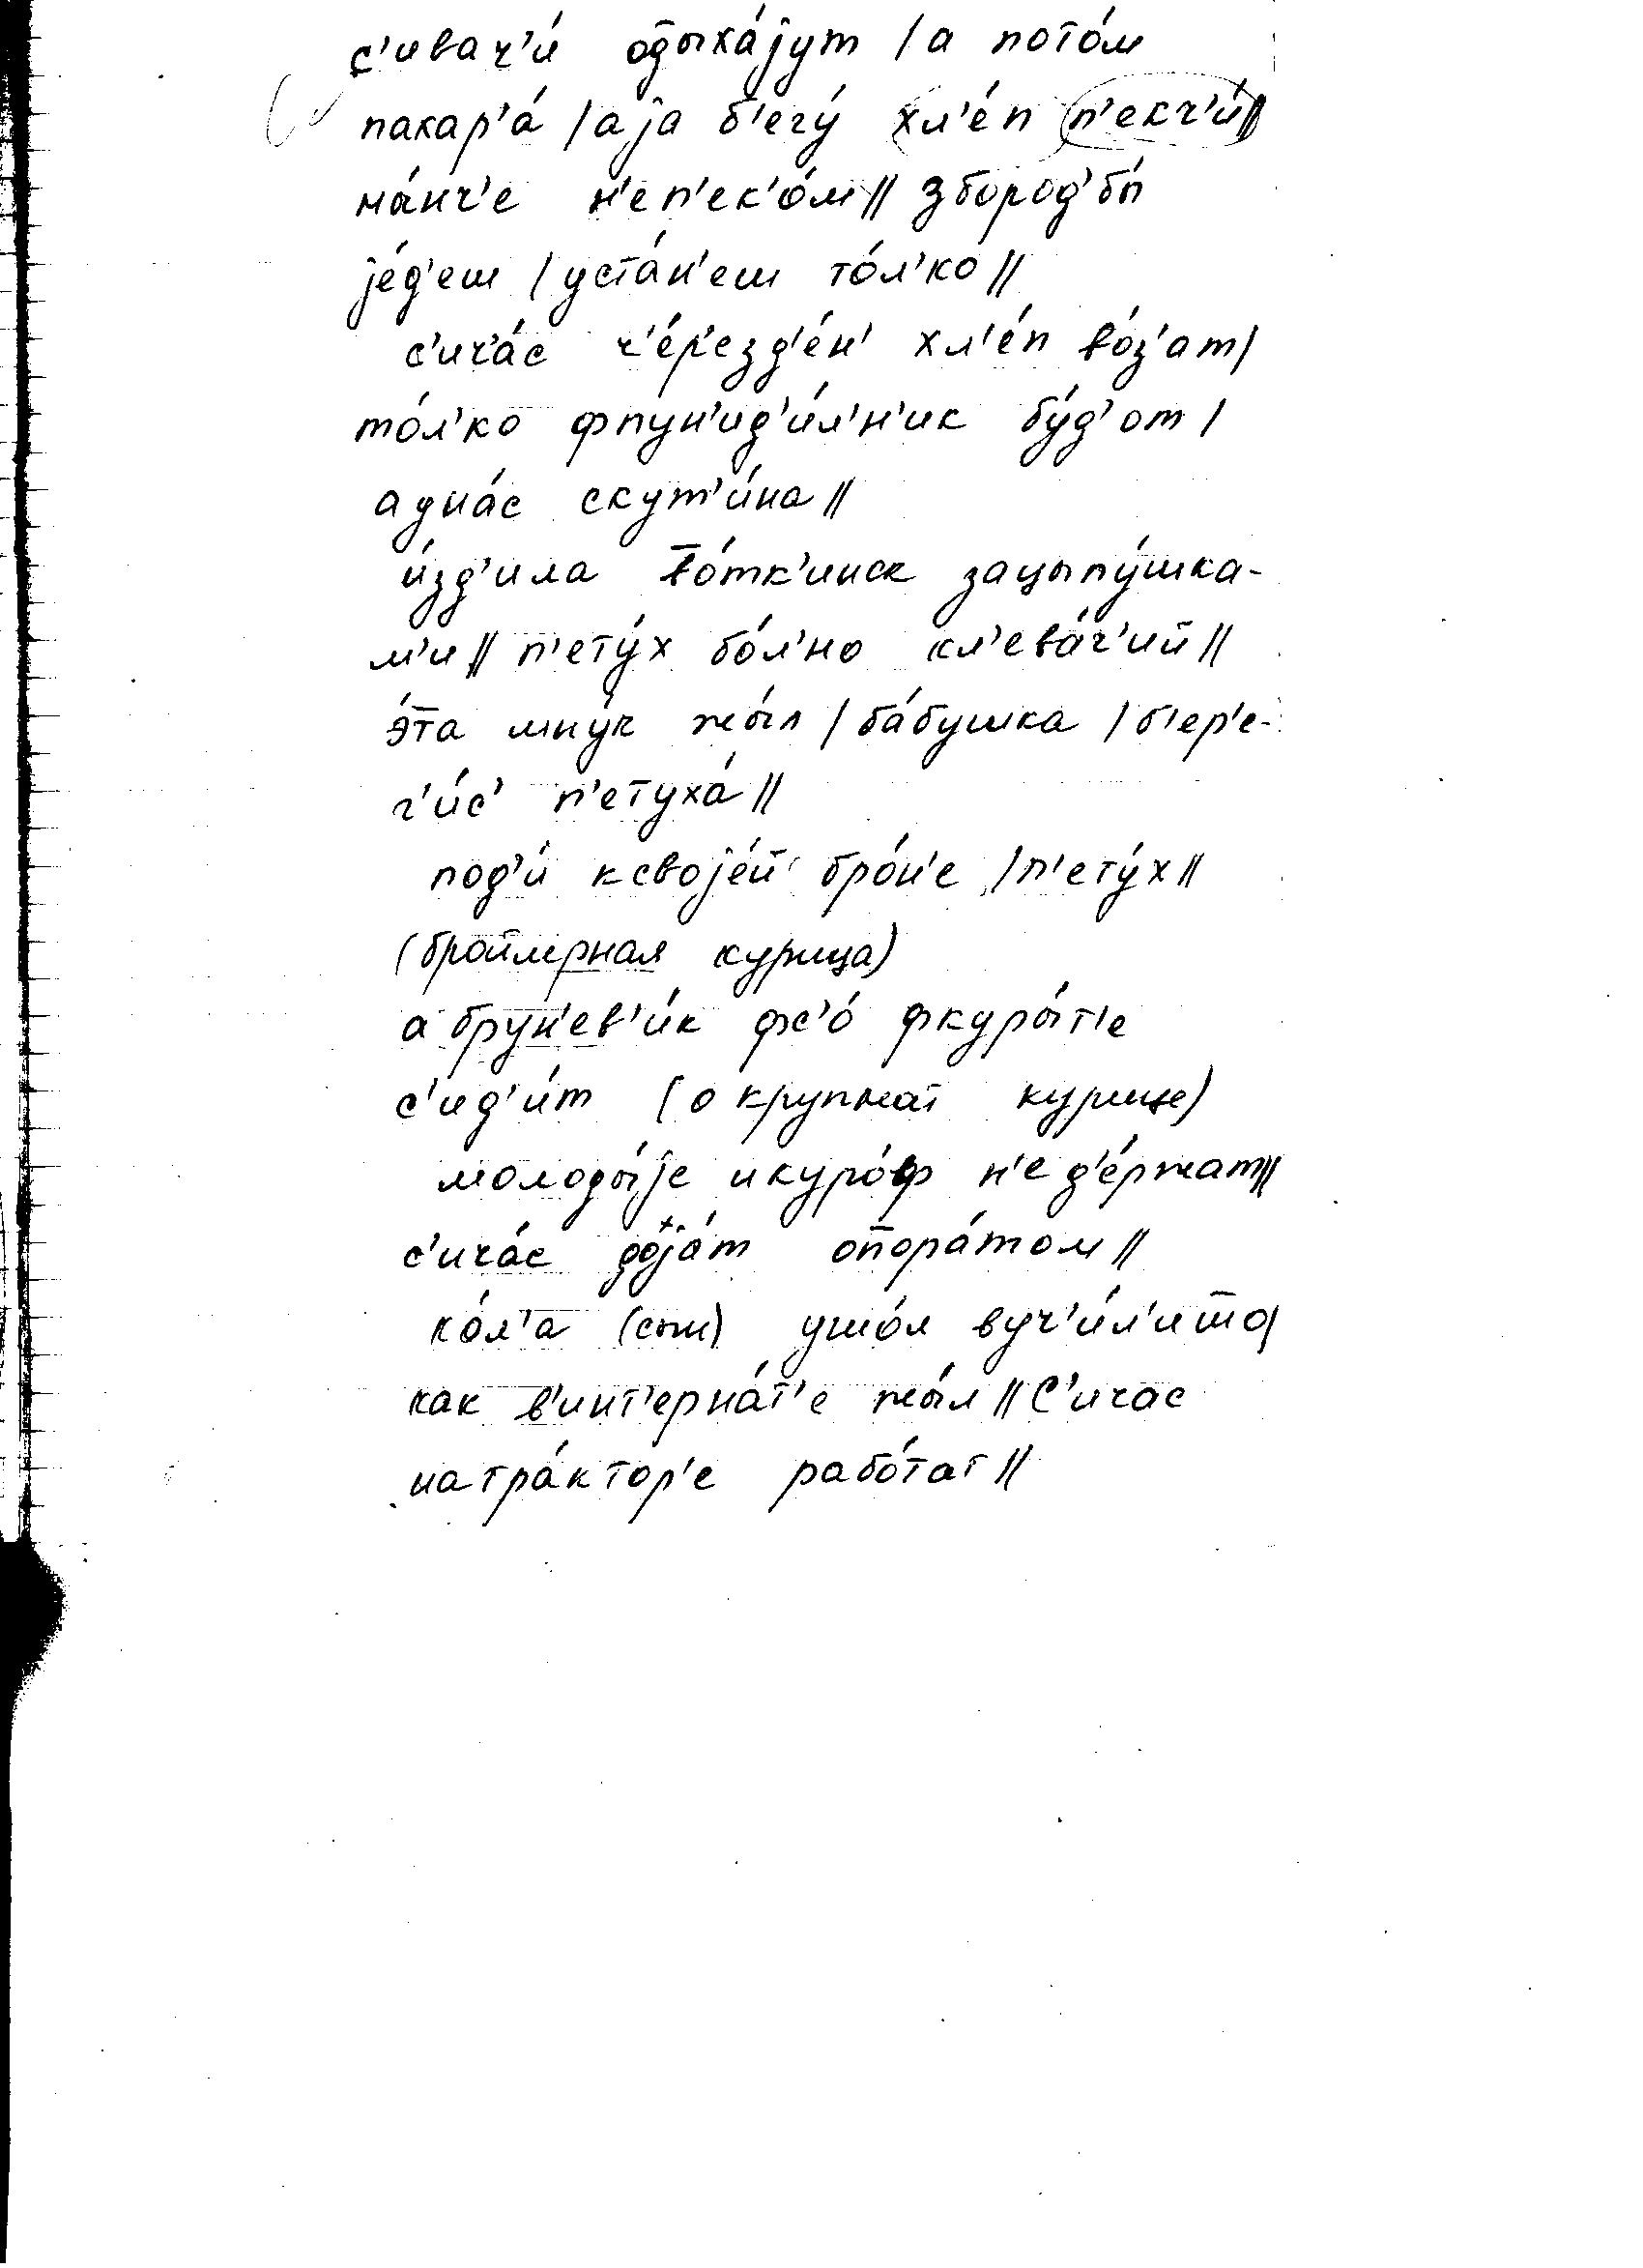 с'ивач'и́ одыха́jут / а пото́м
пакар'а́ / а jа б'егу́ хл'е́п п'екч'и́ //
ны́нч'е н'еп'ек'о́м // збород'бы́
jе́д'еш / уста́н'еш то́л'ко //
с'ич'а́с ч'е́р'езд'е́н' хл'е́п во́з'ат /
то́л'ко фпун'ид'и́л'н'ик бу́д'от /
а уна́с скут'и́на //
и́зд'ила во́тк'инск зацыпу́шка-
м'и // п'ету́х бо́л'но кл'ева́ч'ий //
э́та мну́к жы́л / ба́бушка / б'ер'е-
г'и́с' п'етуха́ //
под'и́ ксвоjе́й бро́н'е / п'ету́х //
(бройлерная курица)
а брун'ев'и́к фс'о́ фкуры́т'е
с'ид'и́т (о крупной курице)
молоды́jе икуро́ф н'ед'е́ржат //
с'ича́с доjа́т опора́том //
ко́л'а (сын) ушо́л вуч'и́л'ишшо /
как в'инт'ерна́т'е жы́л // С'ичас
натра́ктор'е рабо́тат //